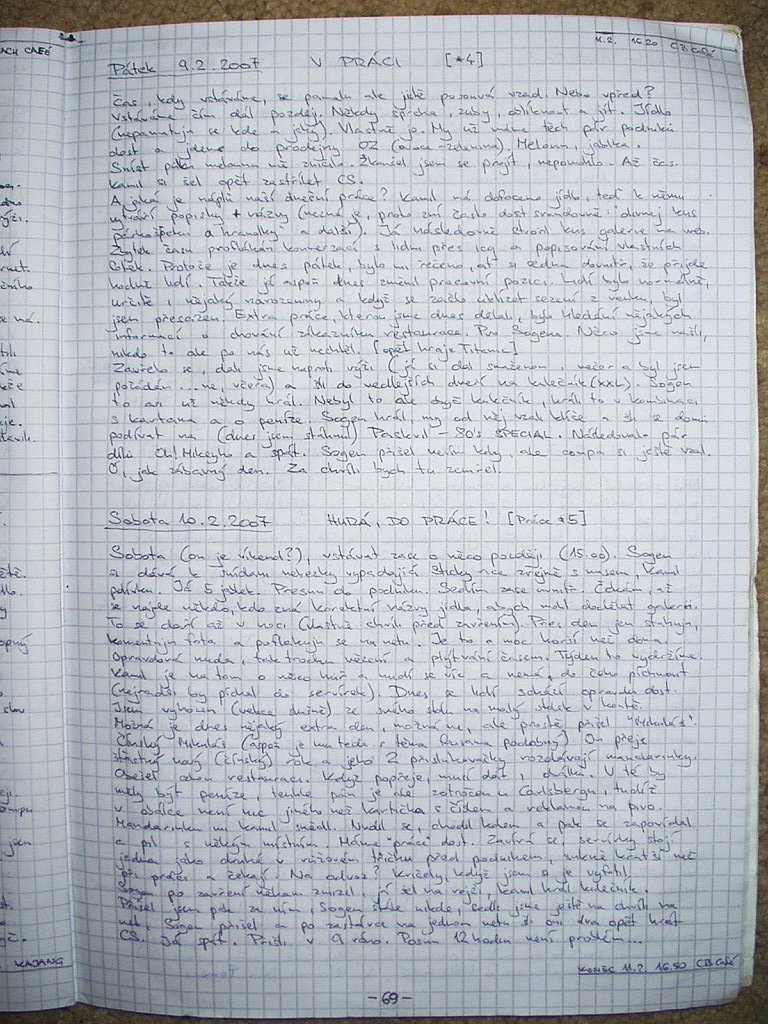 ACH CAFÉ
11.2. 16.20 CB Café
Pátek 9.2.2007 V PRÁCI [*4]
Čas, kdy vstáváme, se pomalu ale jistě posouvá vzad. Nebo vpřed?
Vstáváme čím dál později. Někdy sprcha, zuby, obléknout a jít. Jídlo
(nepamatuju se kde a jaký). Vlastně jo. My už máme těch pár podniků
dost a jdeme do prodejny OZ (ovoce-zelenina). Meloun, jablka.
Sníst půlku melounu mě zničilo. Zkoušel jsem se projít, nepomohlo. Až čas.
Kamil si šel opět zastřílet CS.
A jaká je náplň naší dnešní práce? Kamil má dofoceno jídlo, teď k němu
vytváří popisky + názvy (nezná je, proto zní často dost srandovně: "divnej kus
a hranolky" a další). Já následovně stvořil kus galerie na web.
Zbytek času proflákán konverzací s lidmi přes icq a popisování vlastních
fotek. Protože je dnes pátek, bylo mi řečeno, ať si sednu dovnitř, že přijde
hodně lidí. Takže já aspoň dnes změnil pracovní pozici. Lidí bylo normálně,
určitě i nějaký narozeniny a když se začlo uklízet sezení z venku, byl
jsem přesazen. Extra práce, kterou jsme dnes dělali, bylo hledání nějakých
informací o chování zákazníků restaurace. Pro Sogena. Něco jsme našli,
nikdo to ale po nás už nechtěl. [opět hraje Titanic]
Zavřelo se, dali jsme naproti rýži (já si dal smaženou, večer a byl jsem
požádán ...ne, včera) a šli do vedlejších dveří na kulečník (XXL). Sogen
to asi už někdy hrál. Nebyl to ale čistě kulečník, hráli to v kombinaci
s kartama a o peníze. Sogen hrál, my od něj vzali klíče a šli se domů
podívat na (dnes jsem stáhnul) Paskvil - 80's SPECIAL. Následovalo pár
dílů Oh! Mikeyho a spát. Sogen přišel nevím kdy, ale compa si ještě vzal.
Ó, jak zábavný den. Za chvíli bych tu zemřel.
Sobota 10.2.2007 HURÁ, DO PRÁCE! [Práce *5]
Sobota (on je víkend?), vstávat zase o něco později (15.00). Sogen
a dává k snídani nehezky vypadající sticky rice zřejmě s masem, Kamil
polívku. Já 5 jablek. Přesun do podniku. Sedím zase uvnitř. Čekám, až
se najde někdo, kdo zná korektní názvy jídla, abych mohl dodělat galerii.
To se daří až v noci (vlastně chvíli před zavřením). Přes den jen stahuju,
komentuju fota a poflakuju se na netu. Je to o moc horší než doma.
Opravdová nuda, tak trochu vězení a plýtvání časem. Týden to vydržíme.
Kamil je na tom o něco hůř a nudí se víc a nemá do čeho píchnout
(nejradši by píchal do servírek). Dnes se lidí schází opravdu dost.
Jsem vyhozen (velice slušně) ze svého stolu na malý stolek v koutě.
Možná je dnes nějaký extra den, možná ne, ale prostě přišel "Mikuláš".
Čínský Mikuláš (aspoň je mu teda s těma fousama podobný) On přeje
šťastný nový (čínský) rok a jeho 2 přisluhovačky rozdávají mandarinky.
Oběžel celou restauraci. Když popřeje, musí dát i obálku. V té by
měly být peníze, tenhle pán je ale zotročen u Carlsbergu, tudíž
v obálce není nic jiného než kartička s číslem a reklamou na pivo.
Mandarinku mi Kamil snědl. Nudil se, chodil kolem a pak se zapovídal
a pil s někým místním. Máme "práce" dost. Zavírá se, servírky stojí
jedna jako druhá v růžovém tričku před podnikem, sukně kratší než
při práci a čekají. Na odvoz? Křičely, když jsem si je vyfotil.
Sogen po zavření někam zmizel, já šel na rejži, Kamil hrál kulečník.
Přišel jsem pak za ním, Sogen stále nikde, sedli jsme ještě na chvíli na
net, Sogen přišel a po zastávce na jednom netu šli oni dva opět hrát
CS. Já spát. Přišli v 9 ráno. Posun 12 hodin není problém...
KAJANG
KONEC 11.2. 16.50 CB Café
- 69 -